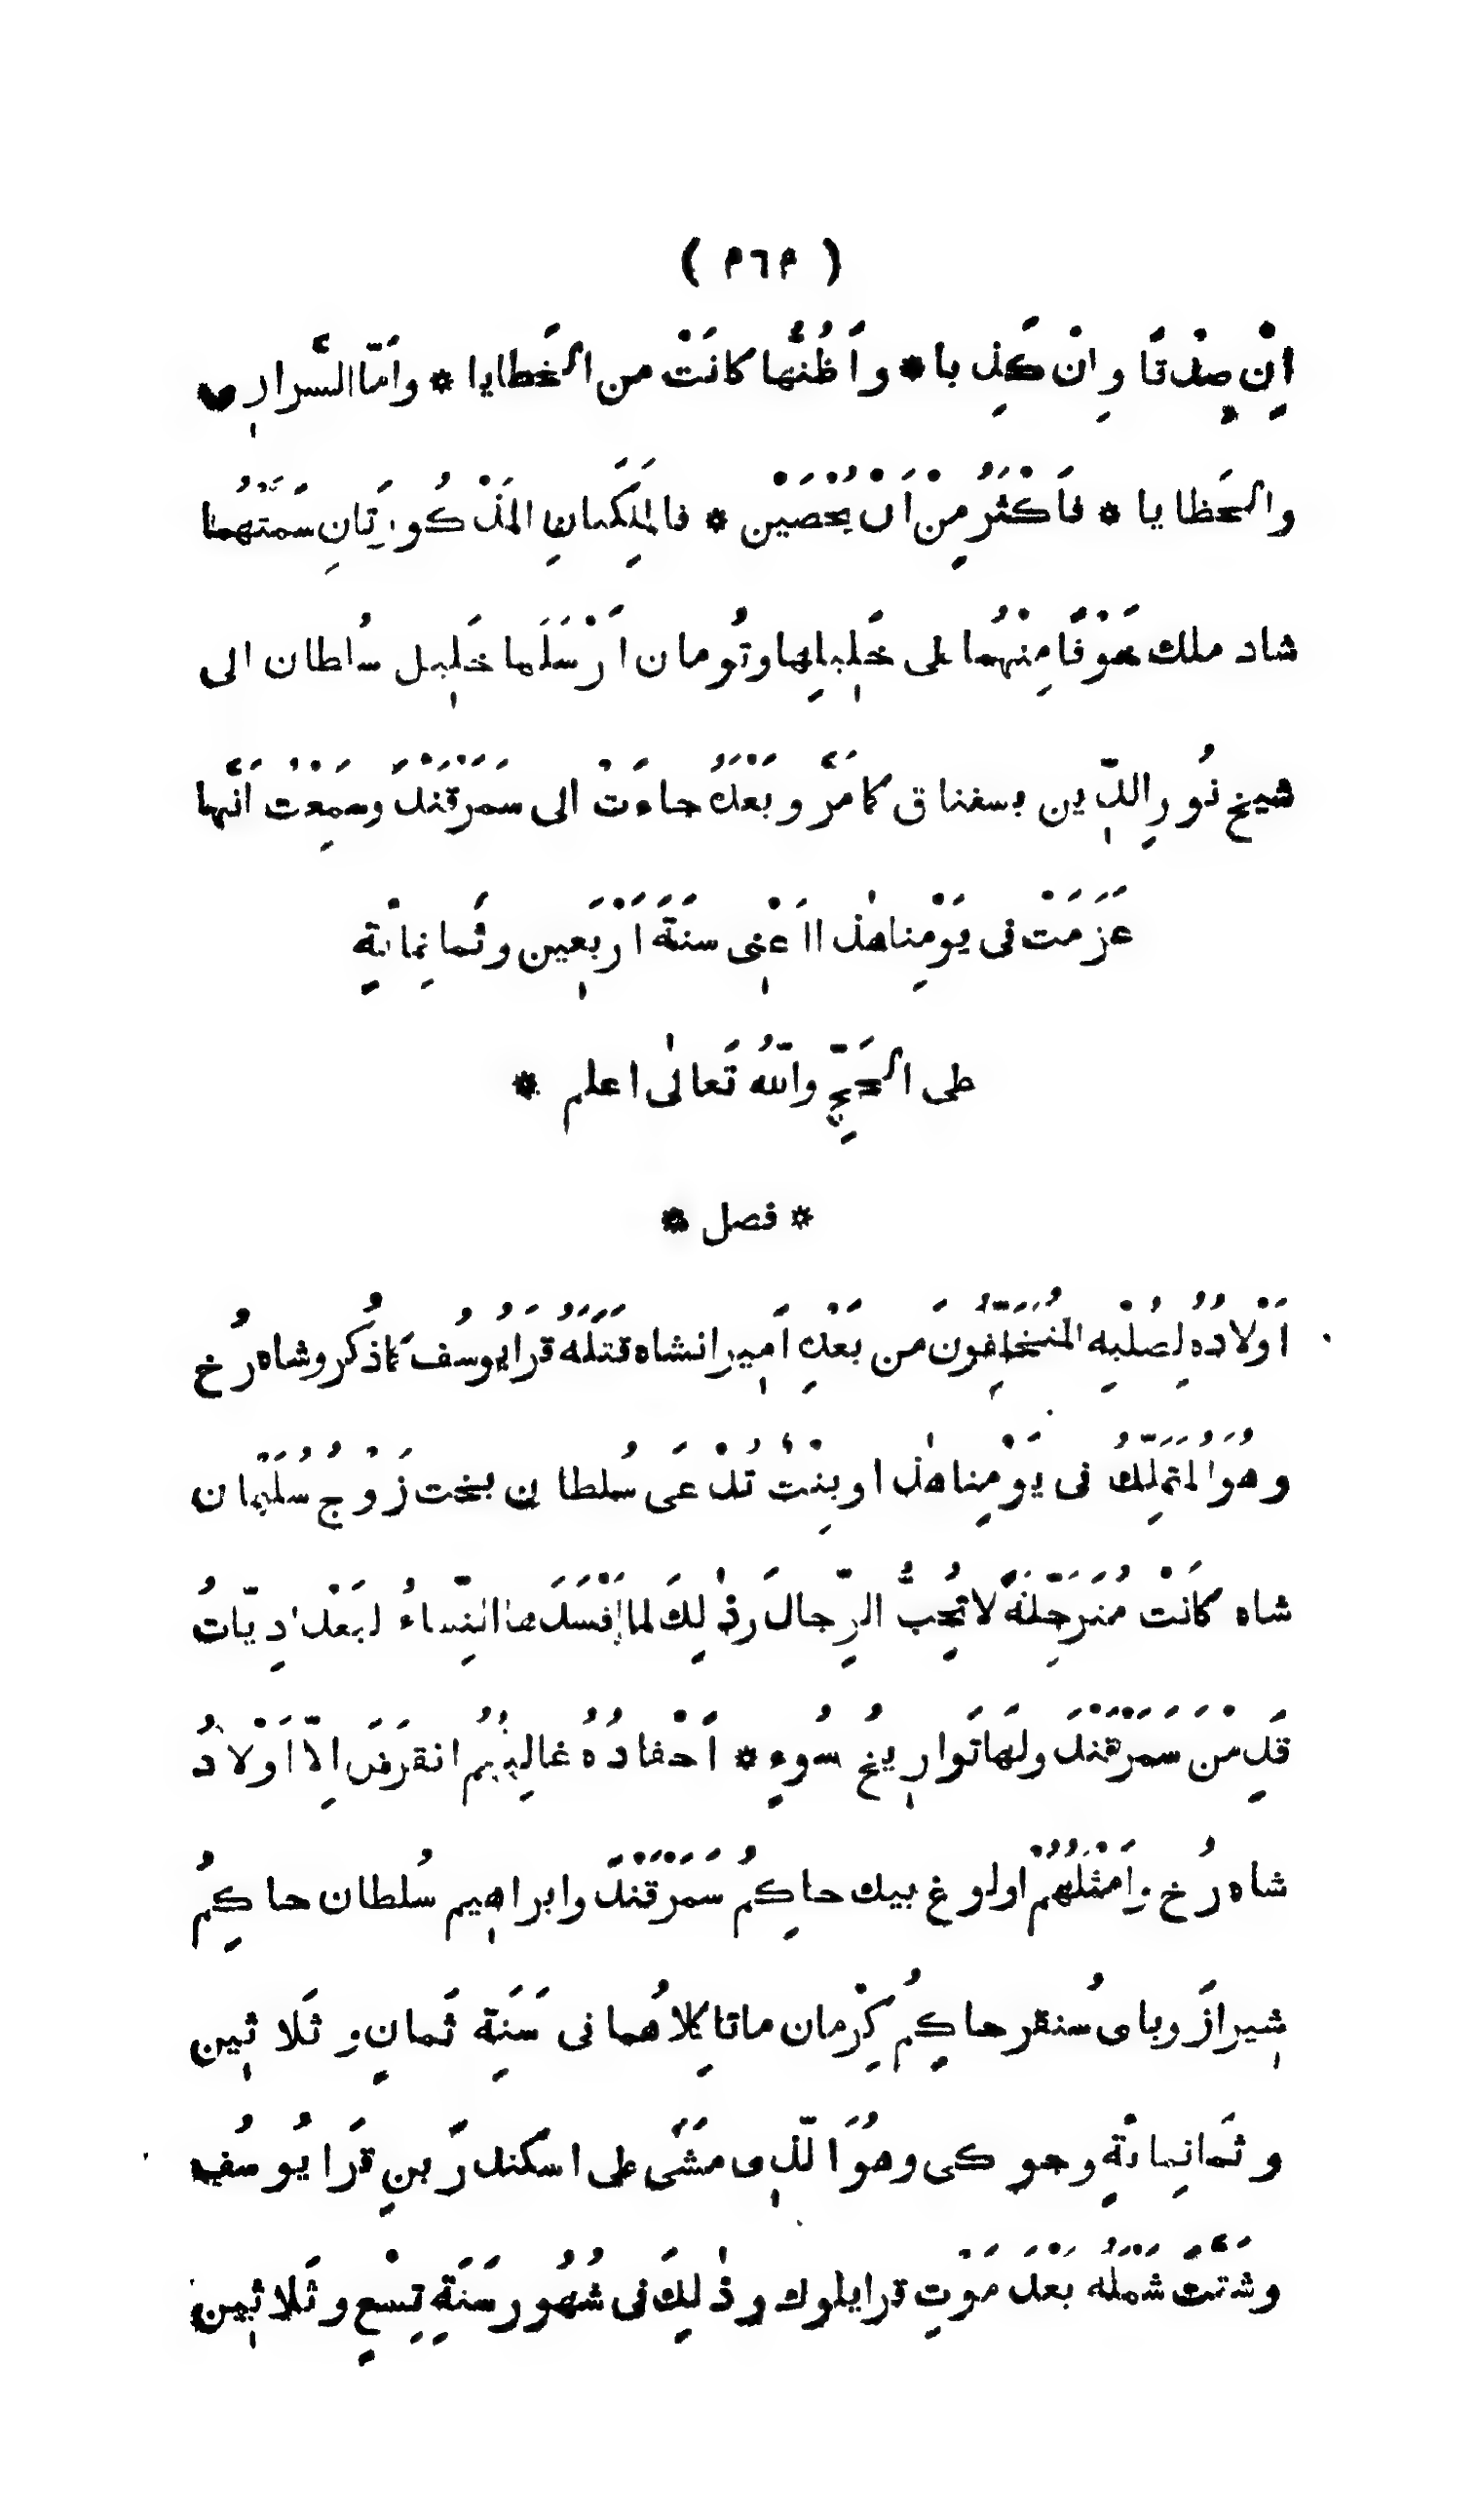 ( ٤٦٤ )
اِنْ صِدْقًا وِانْ كَذِ با * واَظُنُّها كانَتْ من الخَطايا * واَمّا السَّرارِى
والحَظايا * فاَكْثَرُ مِنْ اَنْ يُحْصَيْن * فالمَلِكَتانِ المَذْ كُورَتَانِ سَمَّتْهُما
شاد ملك خَوْفًا مِنْهُما على خَلِيلِها وتُومان اَرْسَلَها خَلِيل سُلطان الى
شيخ نُورِ الدِّين بسغناق كما مَرَّ وبَعْدَهُ جاءَتْ الى سَمَرْقَنْدَ وسَمِعْتُ اَنَّها
عَزَمَتْ فى يَوْمِنا هٰذا اَعْنِى سَنَةَ اَرْبَعِين وثَمانِمائةٍ
على الحَجِّ واللّهُ تَعالٰى اعلم *
* فصل *
اَوْلادُهُ لِصُلْبِهِ المُتَخَلِّفُون مَن بَعْدِهِ اَمِيرانشاه قَتَلَهُ قَرَايُوسُف كَما ذُكر وشاه رُخ
وهُوَ المُتَمَلِّكُ فى يَوْمِنا هٰذا وبِنْتٌ تُدْعَى سُلطان بخت زَوْجُ سُلَيْمان
شاه كانَتْ مُتَرَجِّلَةً لا تُحِبُّ الرِّجالَ وذٰلِكَ لما اَفْسَدَها النِّساءُ البَغْدادِيّاتُ
قَدِمْنَ سَمَرْقَنْدَ ولَهَا تَوارِيخُ سُوءٍ * اَحْفادُهُ غالِبُهُم انقرَضَ اِلّا اَوْلادَ
شاه رُخ واَمْثَلُهُمْ اولوغ بيك حاكِمُ سَمَرْقَنْدَ وابراهِيم سُلطان حاكِمُ
شِيرازَ وباى سُنقر حاكِمُ كِرْمان ماتا كِلاهُما فى سَنَةِ ثَمانٍ وثَلاثِين
وثَمانِمائةٍ وجوكى وهُوَ الّذِى مَشَى على اسكندرَ بنِ قَرَا يُوسُف
وشَتَّتَ شَمْلَهُ بَعْدَ مَوْتِ قرايلوك وذٰلِكَ فى شُهُور سَنَةِ تِسْعٍ وثَلاثِين